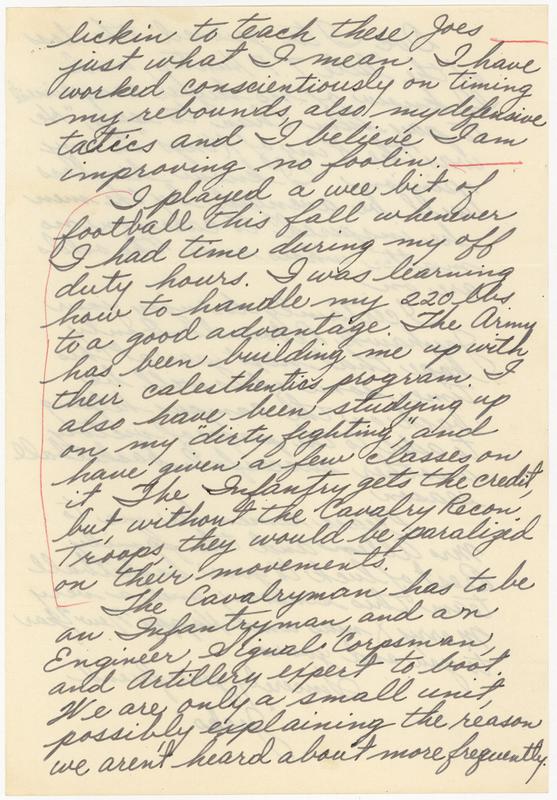 lickin to teach these Joes
just what I mean. I have
worked conscientiously on timing
my rebounds, also, my defensive
tactics and I believe I am
improving no foolin.
I played a wee bit of
football this fall whenever
I had time during my off
duty hours. I was learning
how to handle my 220 lbs
to a good advantage. The Army
has been building me up with
their calesthentics program. I
also have been studying up
on my "dirty fighting," and
have given a few classes on
it. The Infantry gets the credit,
but, without the Cavalry Recon
Troops, they would be paraligid
on their movements.
The Cavalryman has to be
an Infantryman, and an
Engineer, Signal Corpsman,
and Artillery expert to boot.
We are only a small unit,
possibly explaining the reason
we aren't heard about more frequently.